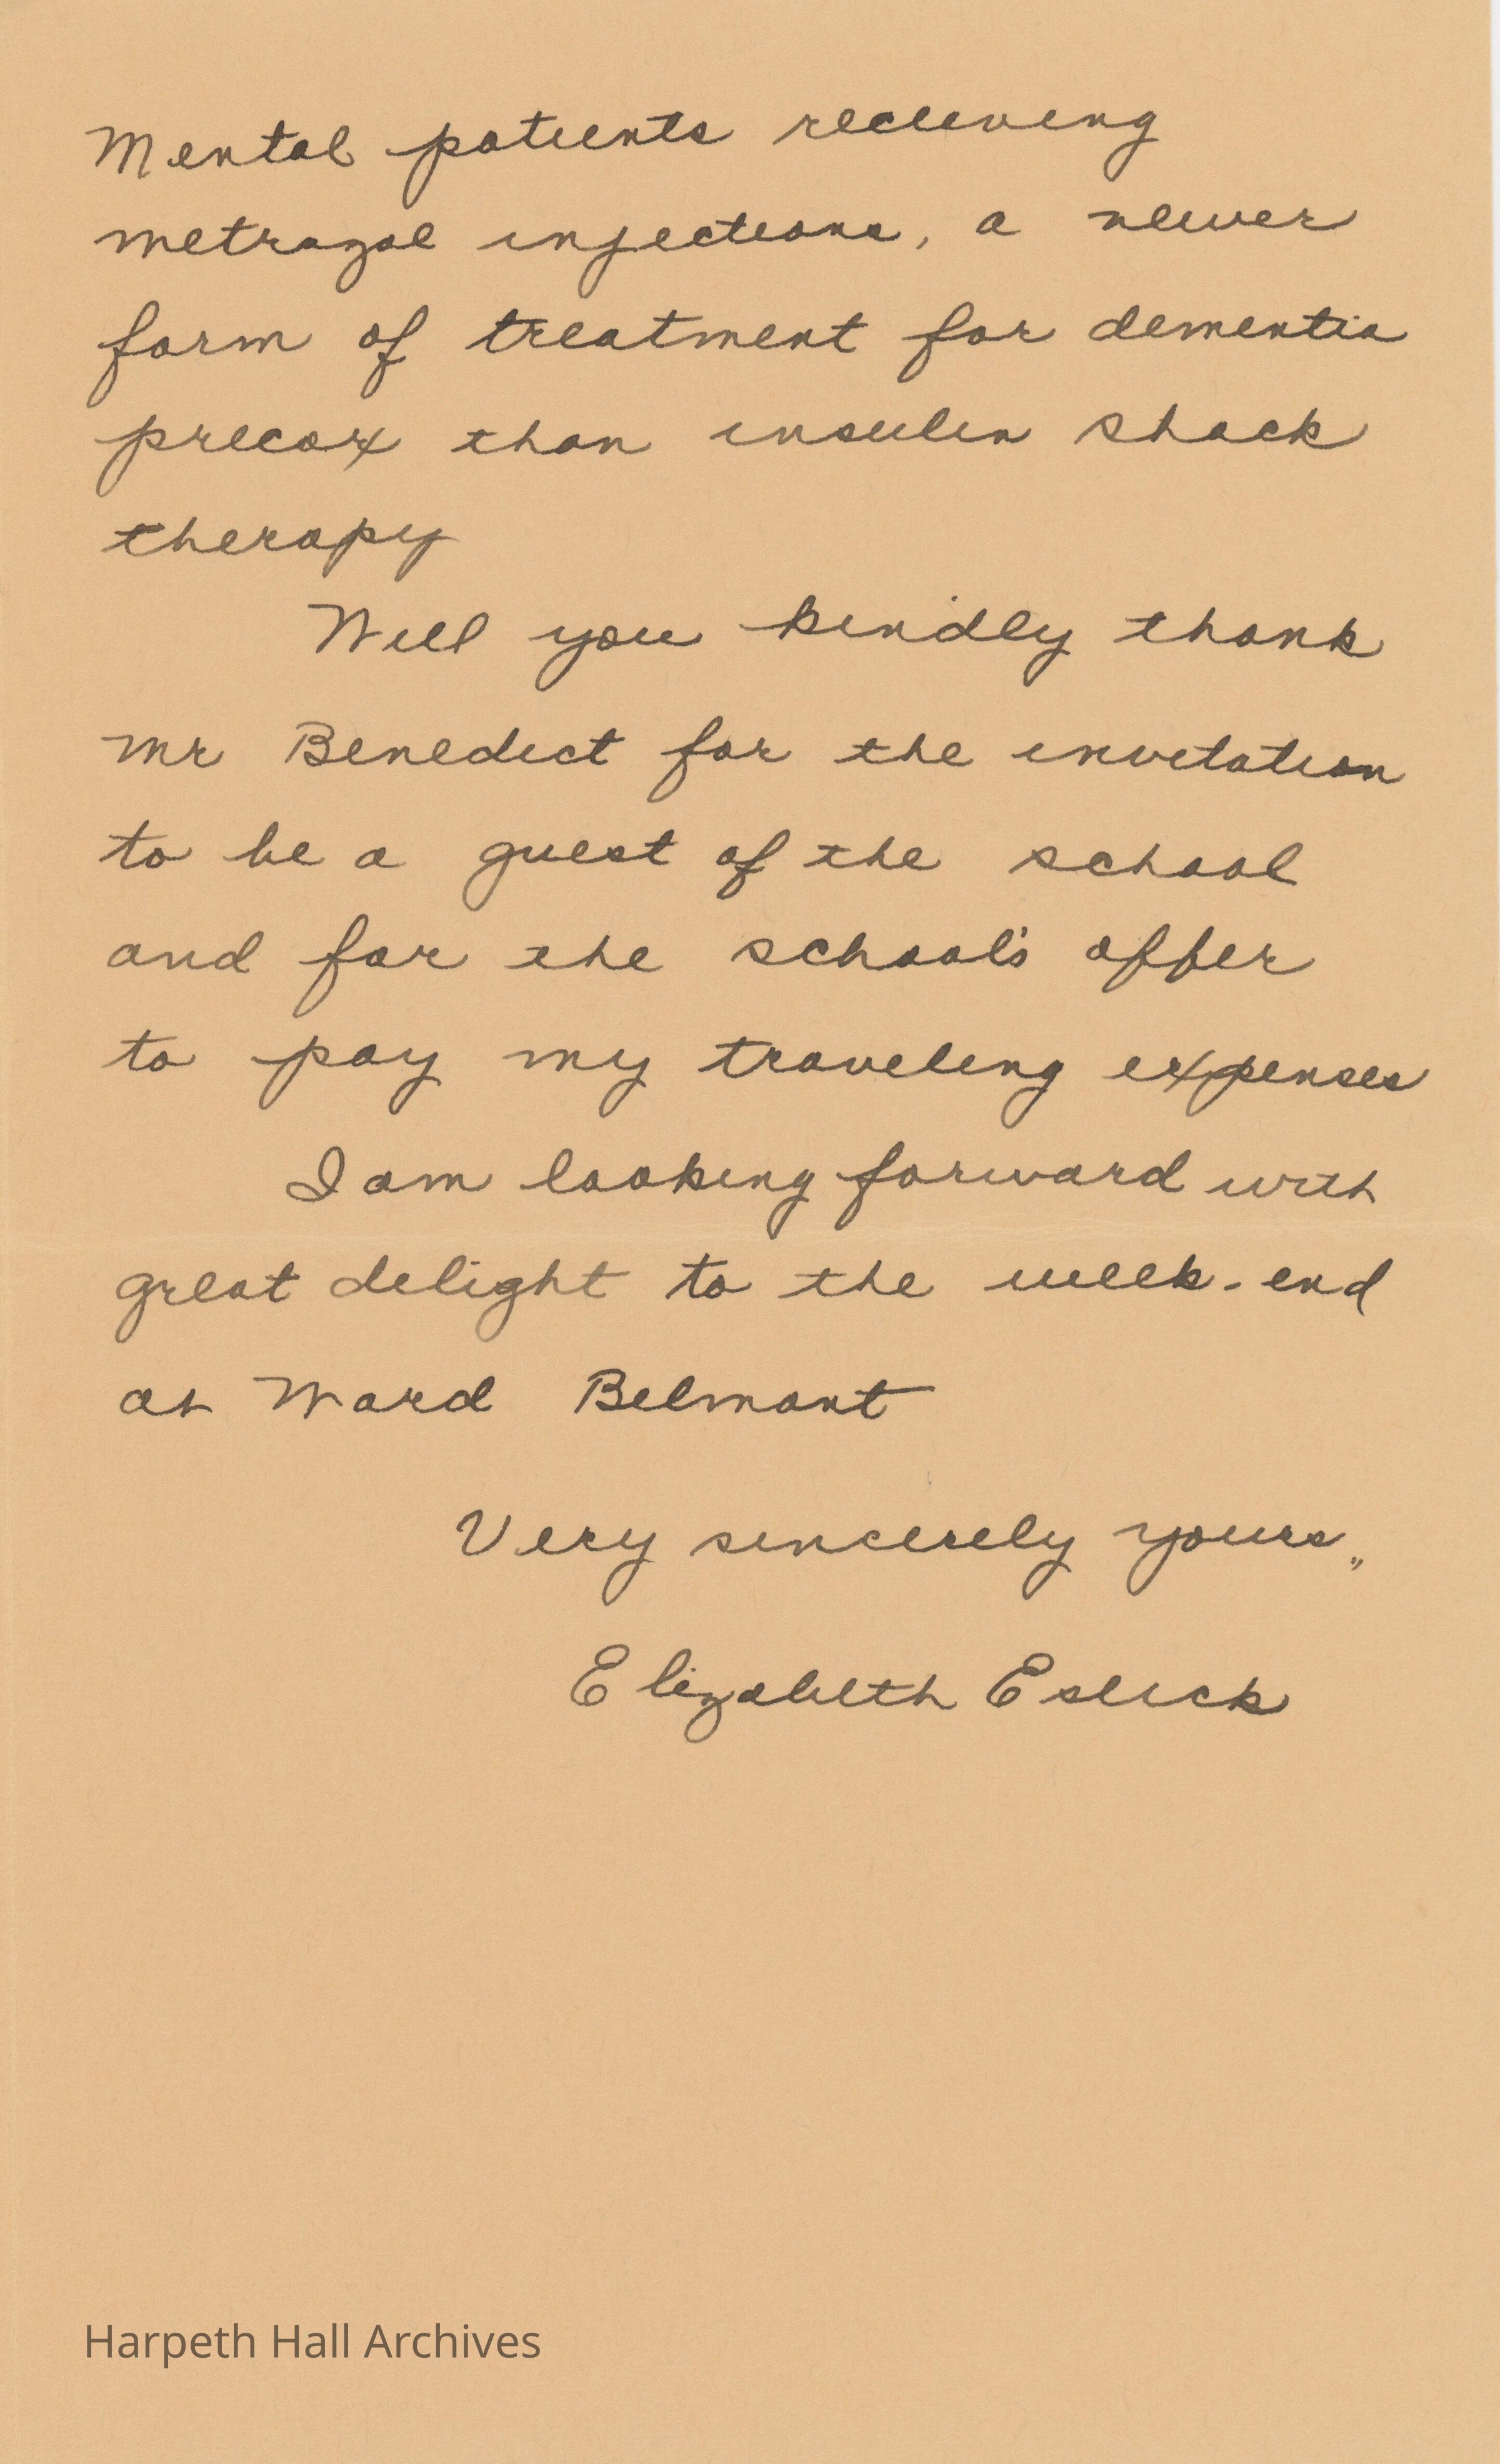 Mental patients recieving
metrazol injections, a newer
form of treatment for dementia
precox than insulin shock
therapy
Will you kindly thank
Mr Benedict for the invitation
to be a guest of the school
and for the school's offer
to pay my traveling expenses
I am looking forward with
great delight to the week-end
at Ward Belmont
Very sincerely yours,,
Elizabeth Eslick
Harpeth Hall Archives